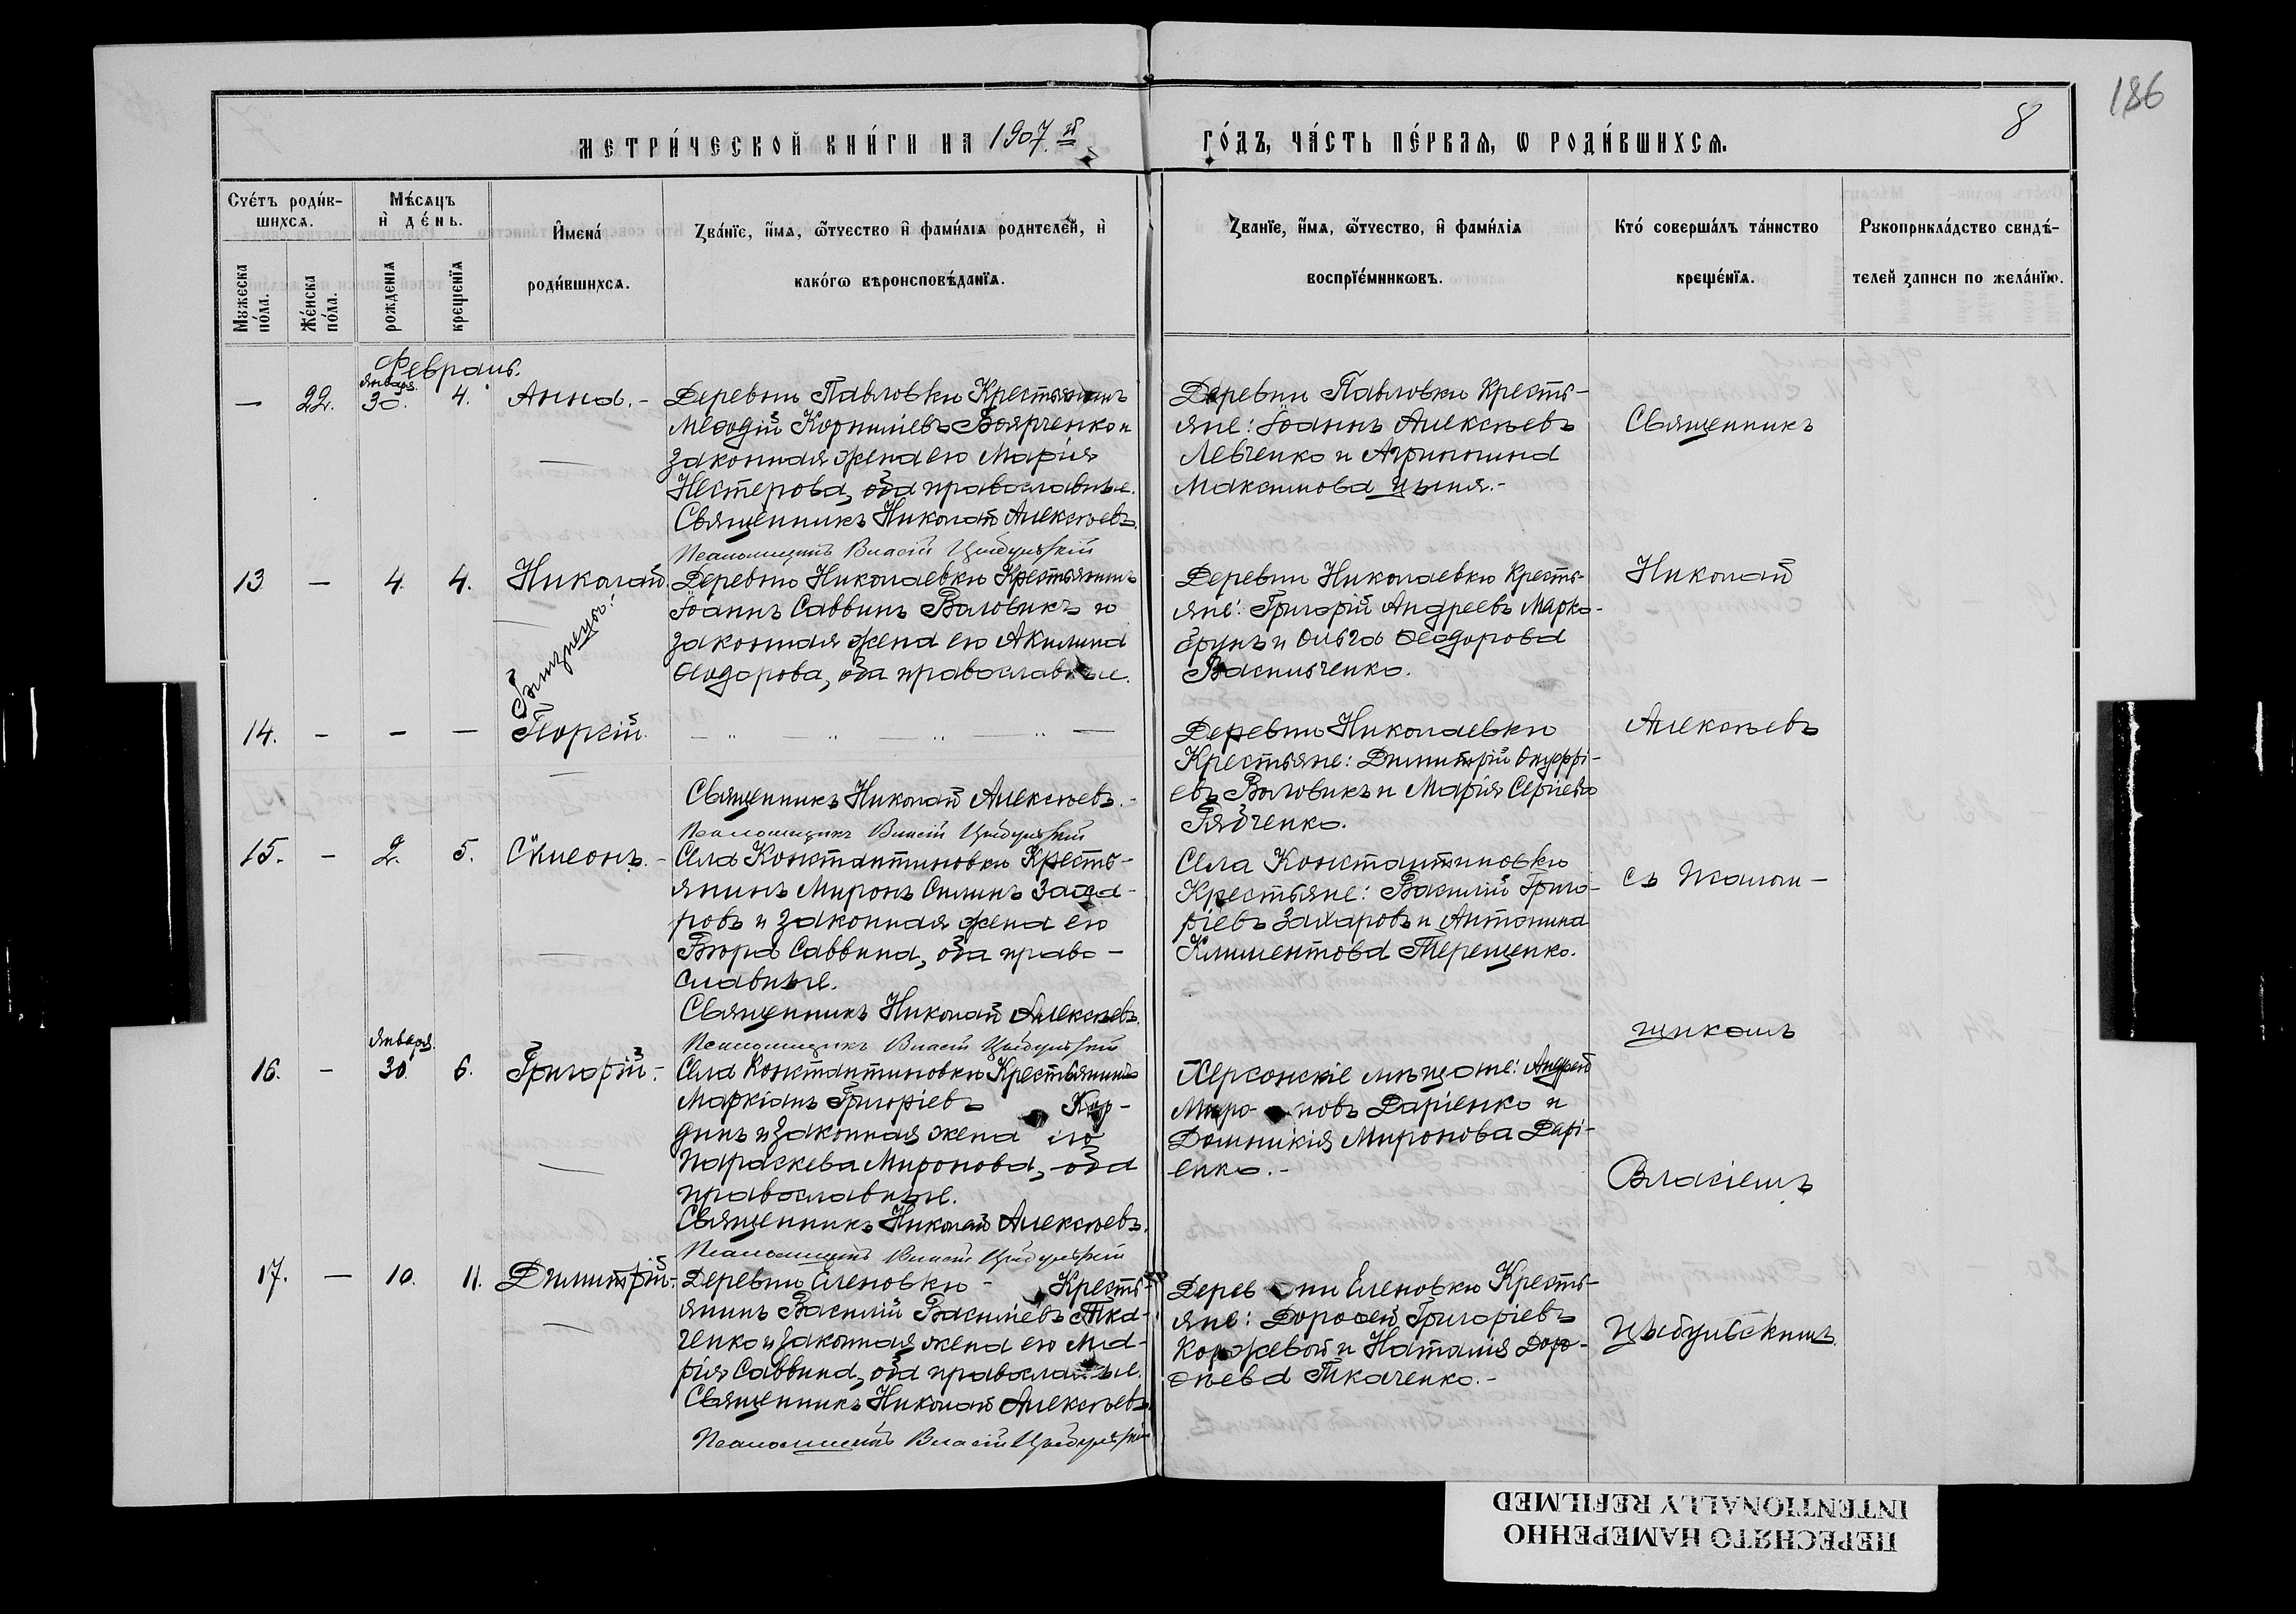 186
8
МЕТРИ́ЧЕСКОЙ КНИ́ГИ НА 1907.й
ГО́ДЪ, ЧА́СТЬ ПЕ́РВАѦ, Ѡ РОДИ́ВШИХСѦ.
Счéтъ роди́в-
шихсѧ.
Мужеска
по́ла.
Же́нска
по́ла.
Мѣ́сѧцъ
и҆ де́нь.
рожденїѧ
крещенїѧ
И҆мена́
роди́вшихсѧ.
Зва́нїе, и҆́мѧ, ѻ҆́тчество и҆ фами́лїѧ родителе́й, и҆
како́гѡ вѣроисповѣ́данїѧ.
Зва́нїе, и҆́мѧ, ѻ҆́тчество, и҆ фами́лїѧ
воспрїе́мникѡвъ.
Кто́ соверша́лъ та́инство
креще́нїѧ.
Рукоприкла́дство свидѣ́-
телей записи по жела́нїю.
Февраль.
— 22. января. 30. 4. Анна. -
Деревни Павловки Крестьянинъ
Меѳодій Корниліевъ Боярченко и
законная жена его Марія
Нестерова, оба православные.
Священникъ Николай Алексѣевъ.
Псаломщикъ Власій Цыбульскій
Деревни Павловки Кресть-
яне: Іоаннъ Алексѣевъ
Левченко и Агриппина
Максимова Цыпя. -
Священникъ
13 — 4. 4. Николай.
Близнецы:
Деревни Николаевки Крестьянинъ
Іоаннъ Саввинъ Воловикъ и
законная жена его Акилина
Ѳеодорова, оба православные.
Деревни Николаевки Кресть-
яне: Григорій Андреевъ Марко-
брунъ и Ольга Ѳеодорова
Васильченко.
Николай
14. - - — Георгій.
— „ — „ — „ — „ —
Священникъ Николай Алексѣевъ. -
Псаломщикъ Власій Цыбульскій
Деревни Николаевки
Крестьяне: Димитрій Онуфрі-
евъ Воловикъ и Марія Сергіева
Рябченко.
Алексѣевъ
15. - 2. 5. Сѵмеонъ. -
Села Константиновки Кресть-
янинъ Миронъ Симинъ Заха-
ровъ и законная жена его
Вѣра Саввина, оба право-
славные.
Священникъ Николай Алексѣевъ.
Псаломщикъ Власій Цыбульскій
Села Константиновки
Крестьяне: Василій Григо-
ріевъ Захаровъ и Антонина
Климентова Терещенко.
съ псалом-
щикомъ
16. - января. 30. 6. Григорій. -
Села Константиновки Крестьянинъ
Маркіанъ Григоріевъ Кор-
динъ и законная жена его
Параскева Миронова, оба
православные.
Священникъ Николай Алексѣевъ.
Псаломщикъ Власій Цыбульскій
Херсонскіе мѣщане: Андрей
Миро-новъ Даріенко и
Домникія Миронова Дарі-
енко. -
Власіемъ
17. — 10. 11. Димитрій. -
Деревни Еленовки - Кресть-
янинъ Василій Василіевъ Тка-
ченко и законная жена его Ма-
рія Саввина, оба православные.
Священникъ Николай Алексѣевъ.
Псаломщикъ Власій Цыбульскій
Деревни Еленовки Кресть-
яне: Дороѳей Григоріевъ
Коржевой и Наталія Доро-
ѳѣева Ткаченко. -
Цыбульскимъ.
ПЕРЕСНЯТО НАМЕРЕННО
INTENTIONALLY REFILMED